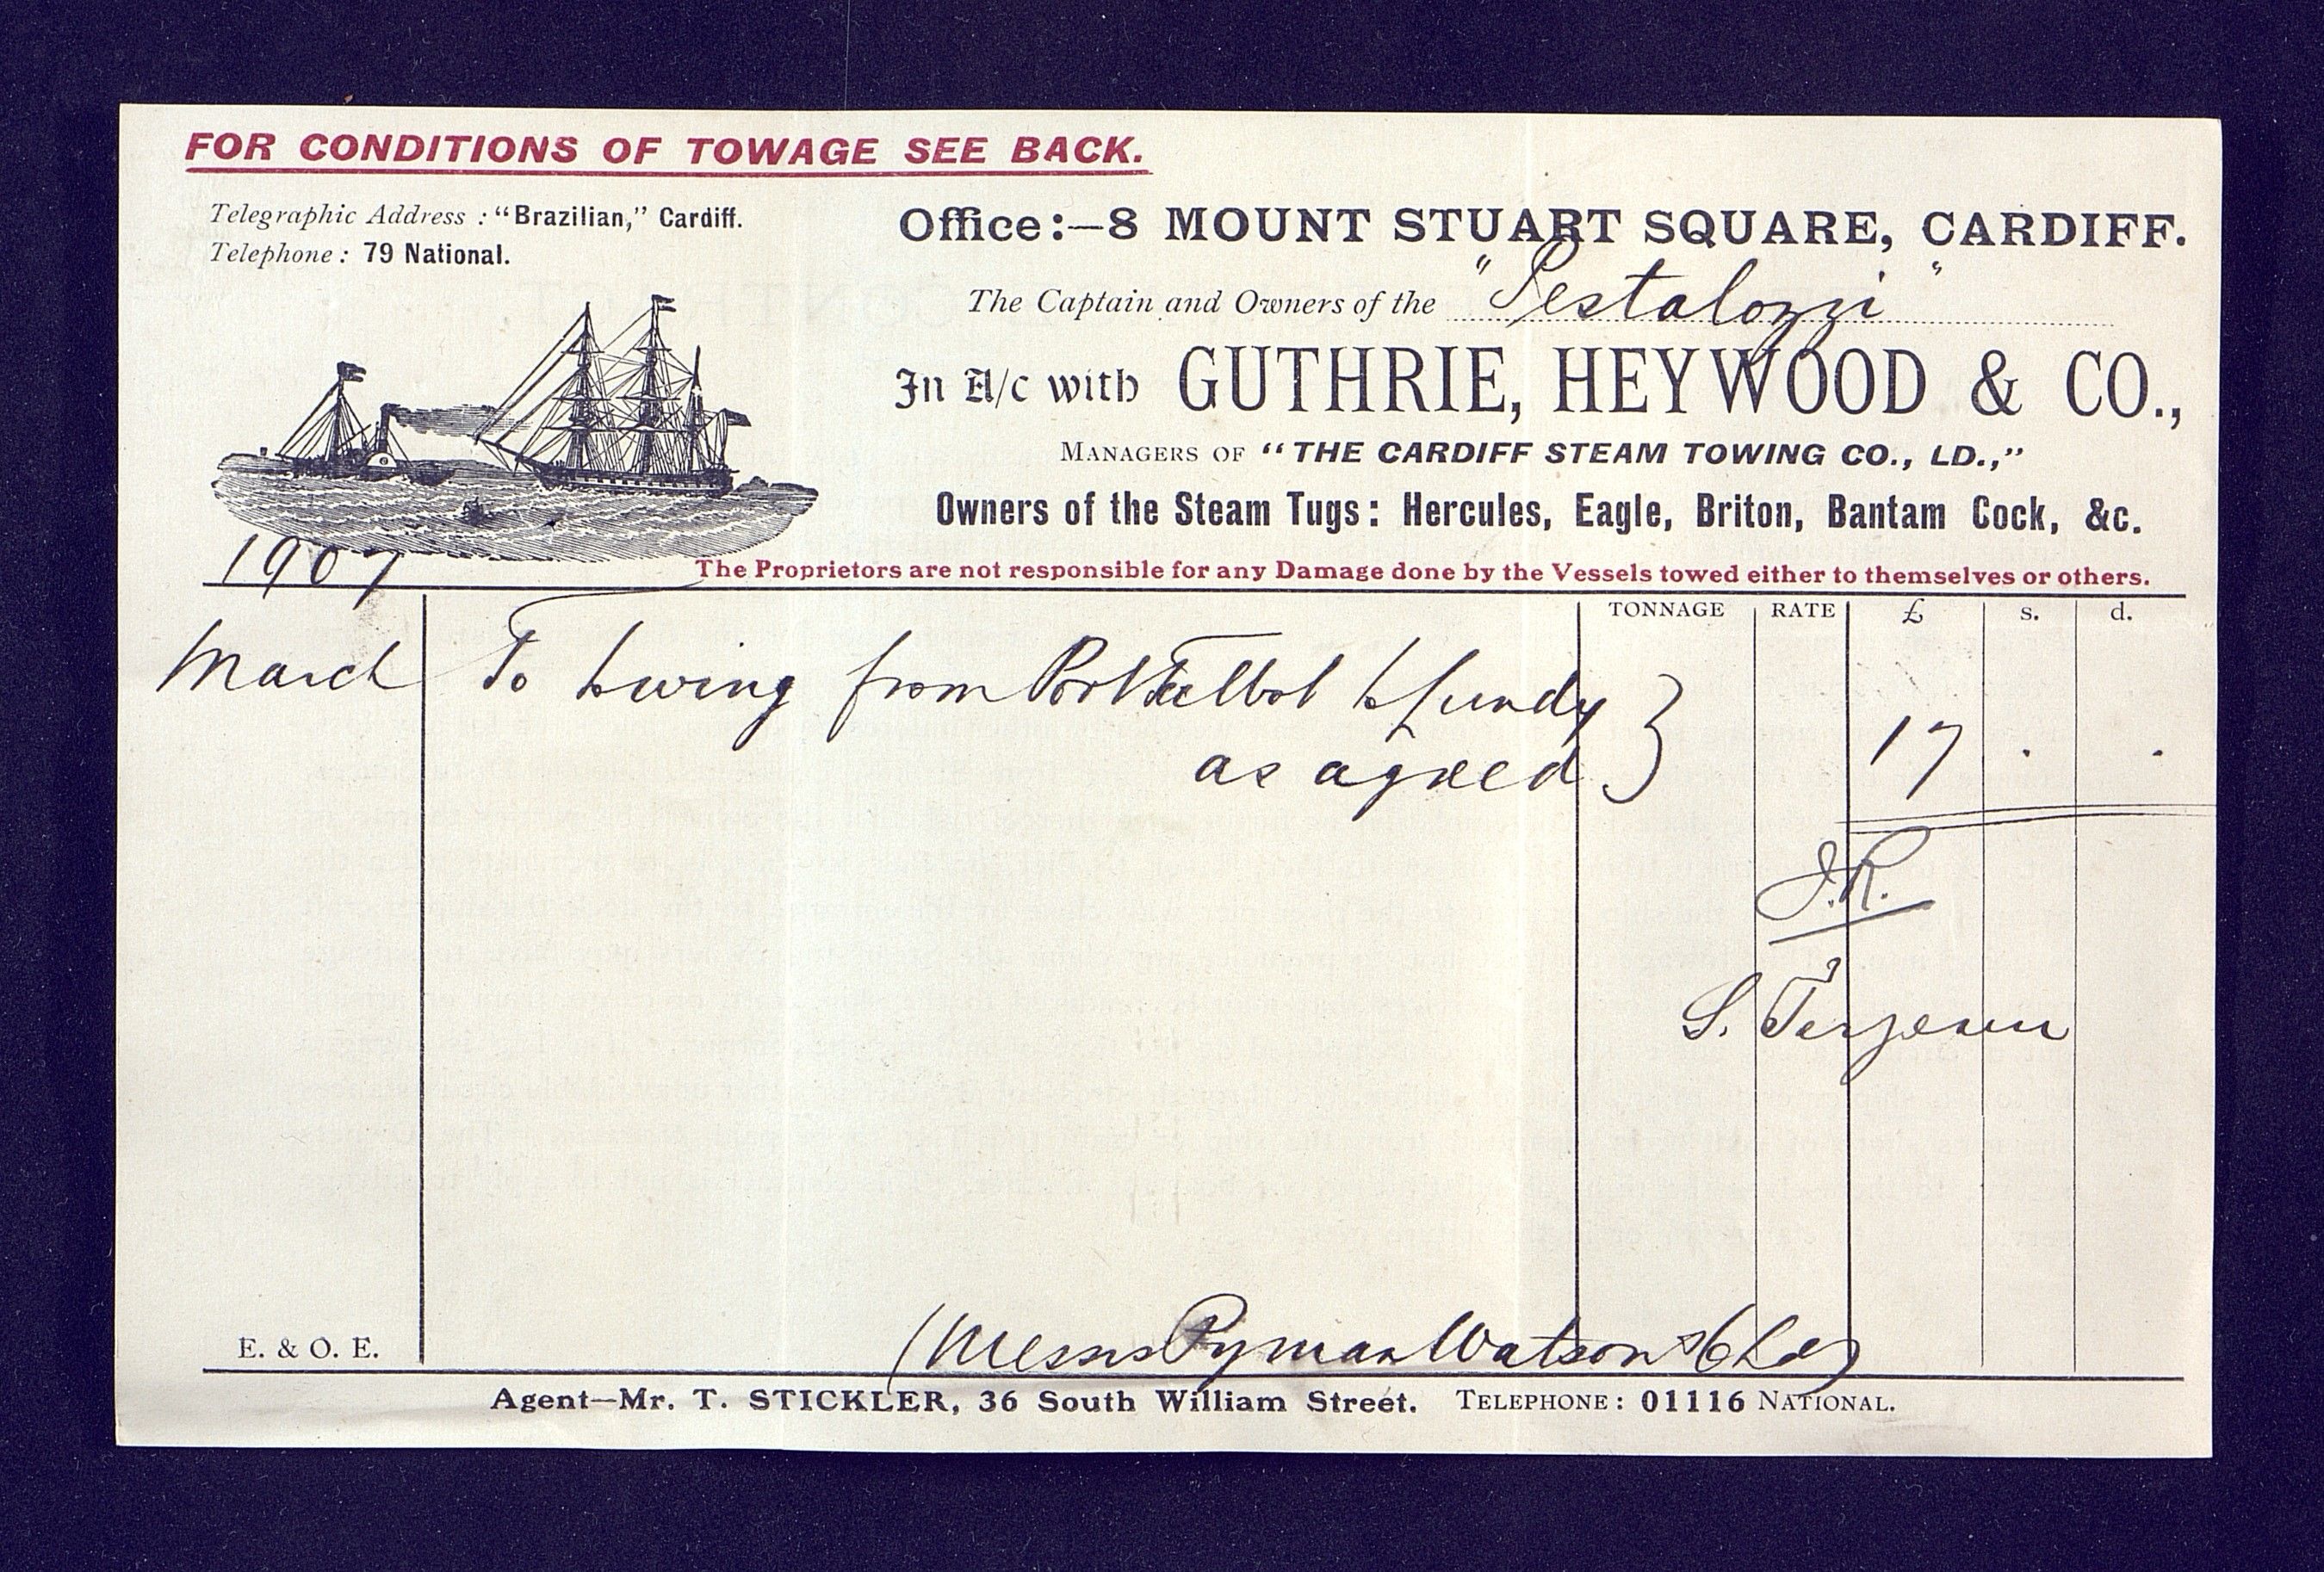 FOR CONDITIONS OF TOWAGE SEE BACK.
Telegraphic Address : "Brazilian," Cardiff.
Telephone : 79 National.
Office:—8 MOUNT STUART SQUARE, CARDIFF.
The Captain and Owners of the "Pestalozzi"
In A/c with GUTHRIE, HEYWOOD & CO.,
MANAGERS OF "THE CARDIFF STEAM TOWING CO., LD.,"
Owners of the Steam Tugs: Hercules, Eagle, Briton, Bantam Cock, &c.
1907
The Proprietors are not responsible for any Damage done by the Vessels towed either to themselves or others.
TONNAGE RATE £ s. d.
March To towing from Port Talbot to Lundy
as agreed 17 . .
J.R.
(Messrs Pyman Watson & Co Ld)
E. & O. E.
Agent—Mr. T. STICKLER, 36 South William Street. TELEPHONE: 01116 NATIONAL.